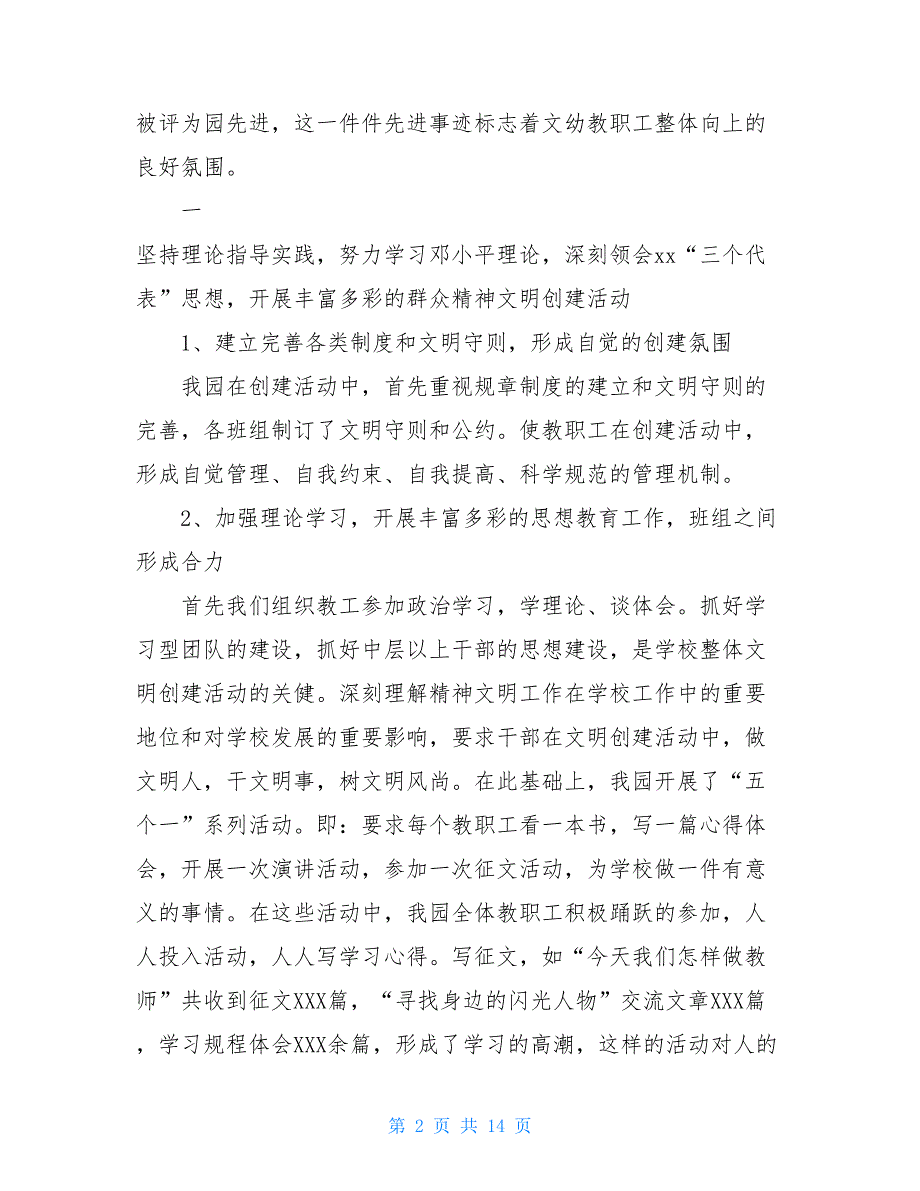 被评为园先进，这一件件先进事迹标志着文幼教职工整体向上的
良好氛围。
一
坚持理论指导实践，努力学习邓小平理论，深刻领会xx“三个代
表”思想，开展丰富多彩的群众精神文明创建活动
1、建立完善各类制度和文明守则，形成自觉的创建氛围
我园在创建活动中，首先重视规章制度的建立和文明守则的
完善，各班组制订了文明守则和公约。使教职工在创建活动中，
形成自觉管理、自我约束、自我提高、科学规范的管理机制。
2、加强理论学习，开展丰富多彩的思想教育工作，班组之间
形成合力
首先我们组织教工参加政治学习，学理论、谈体会。抓好学
习型团队的建设，抓好中层以上干部的思想建设，是学校整体文
明创建活动的关健。深刻理解精神文明工作在学校工作中的重要
地位和对学校发展的重要影响，要求干部在文明创建活动中，做
文明人，干文明事，树文明风尚。在此基础上，我园开展了“五
个一”系列活动。即：要求每个教职工看一本书，写一篇心得体
会，开展一次演讲活动，参加一次征文活动，为学校做一件有意
义的事情。在这些活动中，我园全体教职工积极踊跃的参加，人
人投入活动，人人写学习心得。写征文，如“今天我们怎样做教
师”共收到征文XXX篇，“寻找身边的闪光人物”交流文章XXX篇
，学习规程体会XXX余篇，形成了学习的高潮，这样的活动对人的
第 2 页 共 14 页